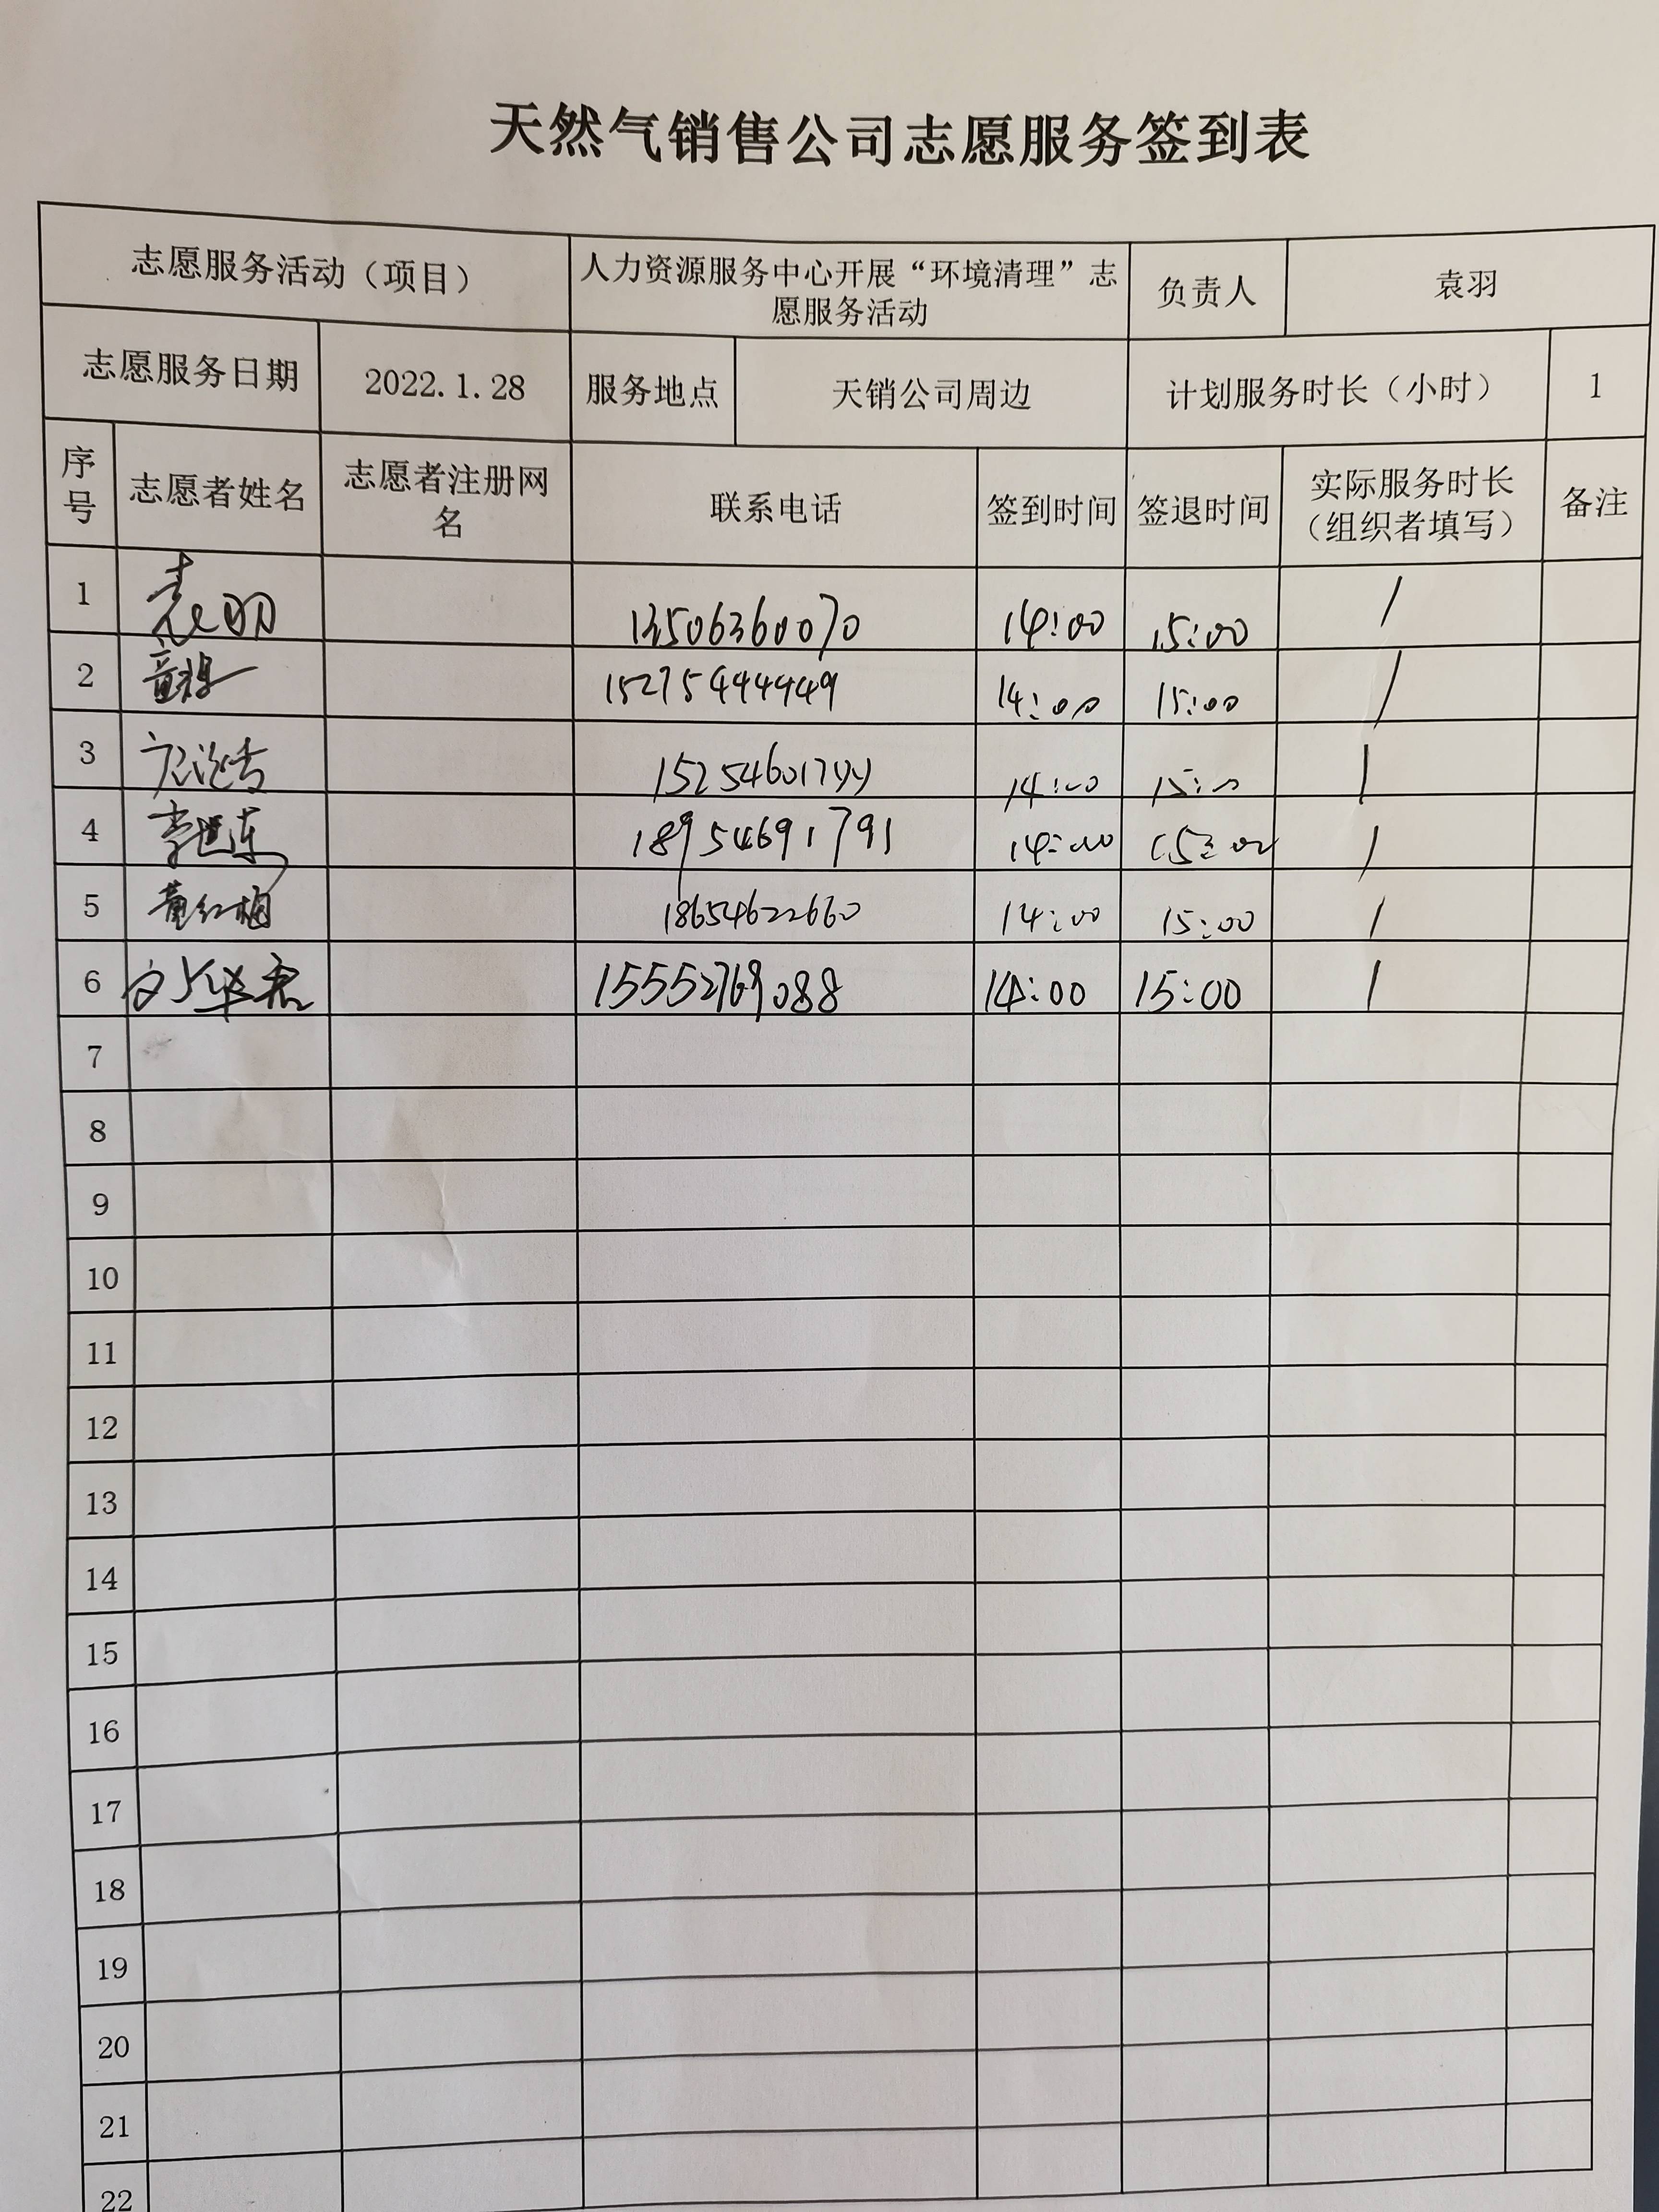 天然气销售公司志愿服务签到表
志愿服务活动（项目） 人力资源服务中心开展“环境清理”志愿服务活动 负责人 袁羽
志愿服务日期 2022.1.28 服务地点 天销公司周边 计划服务时长（小时） 1
序号 志愿者姓名 志愿者注册网名 联系电话 签到时间 签退时间 实际服务时长（组织者填写） 备注
1 袁羽 13506360070 14:00 15:00 1
2 15275444449 14:00 15:00 1
3 14:00 15:00 1
4 李世东 18954691791 14:00 15:00 1
5 黄红梅 18654622660 14:00 15:00 1
6 15552769088 14:00 15:00 1
7
8
9
10
11
12
13
14
15
16
17
18
19
20
21
22